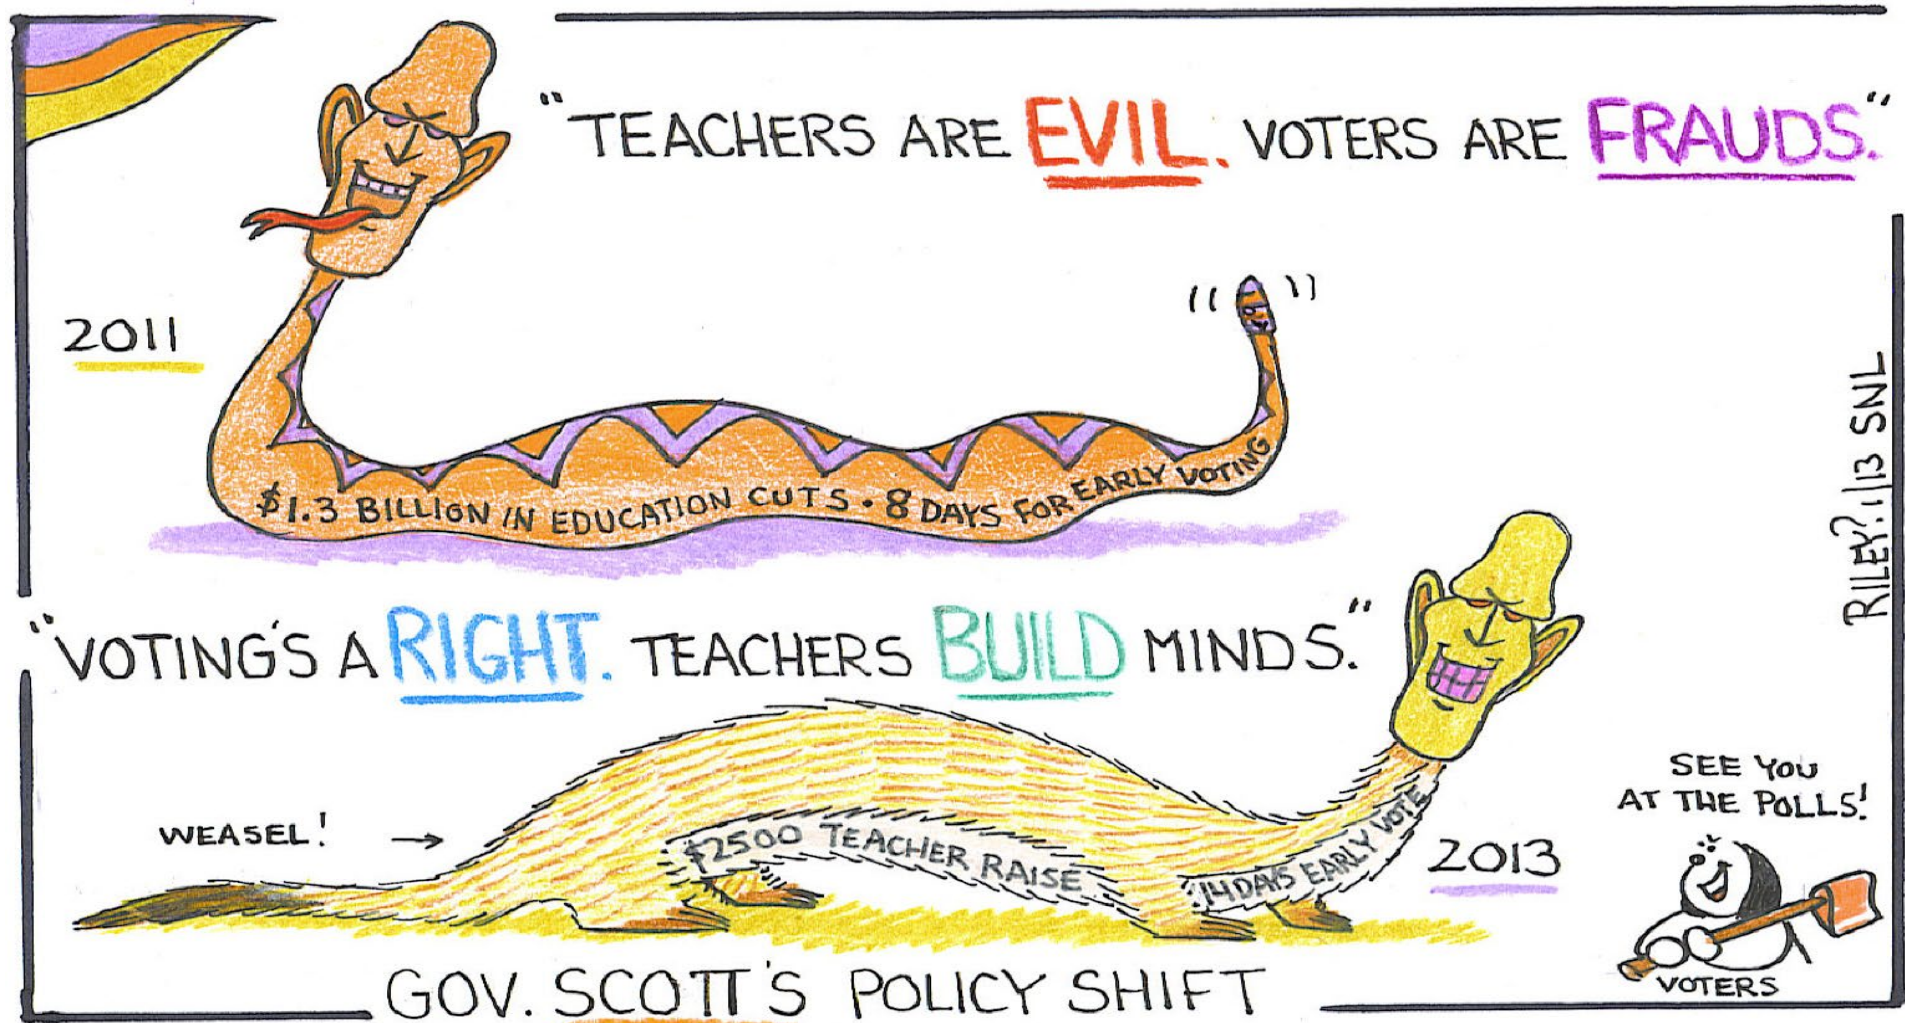 "TEACHERS ARE EVIL. VOTERS ARE FRAUDS."
2011
$1.3 BILLION IN EDUCATION CUTS · 8 DAYS FOR EARLY VOTING
RILEY? 1/13 SNL
"VOTING'S A RIGHT. TEACHERS BUILD MINDS."
WEASEL! →
$2500 TEACHER RAISE
14 DAYS EARLY VOTE
2013
SEE YOU
AT THE POLLS!
VOTERS
GOV. SCOTT'S POLICY SHIFT